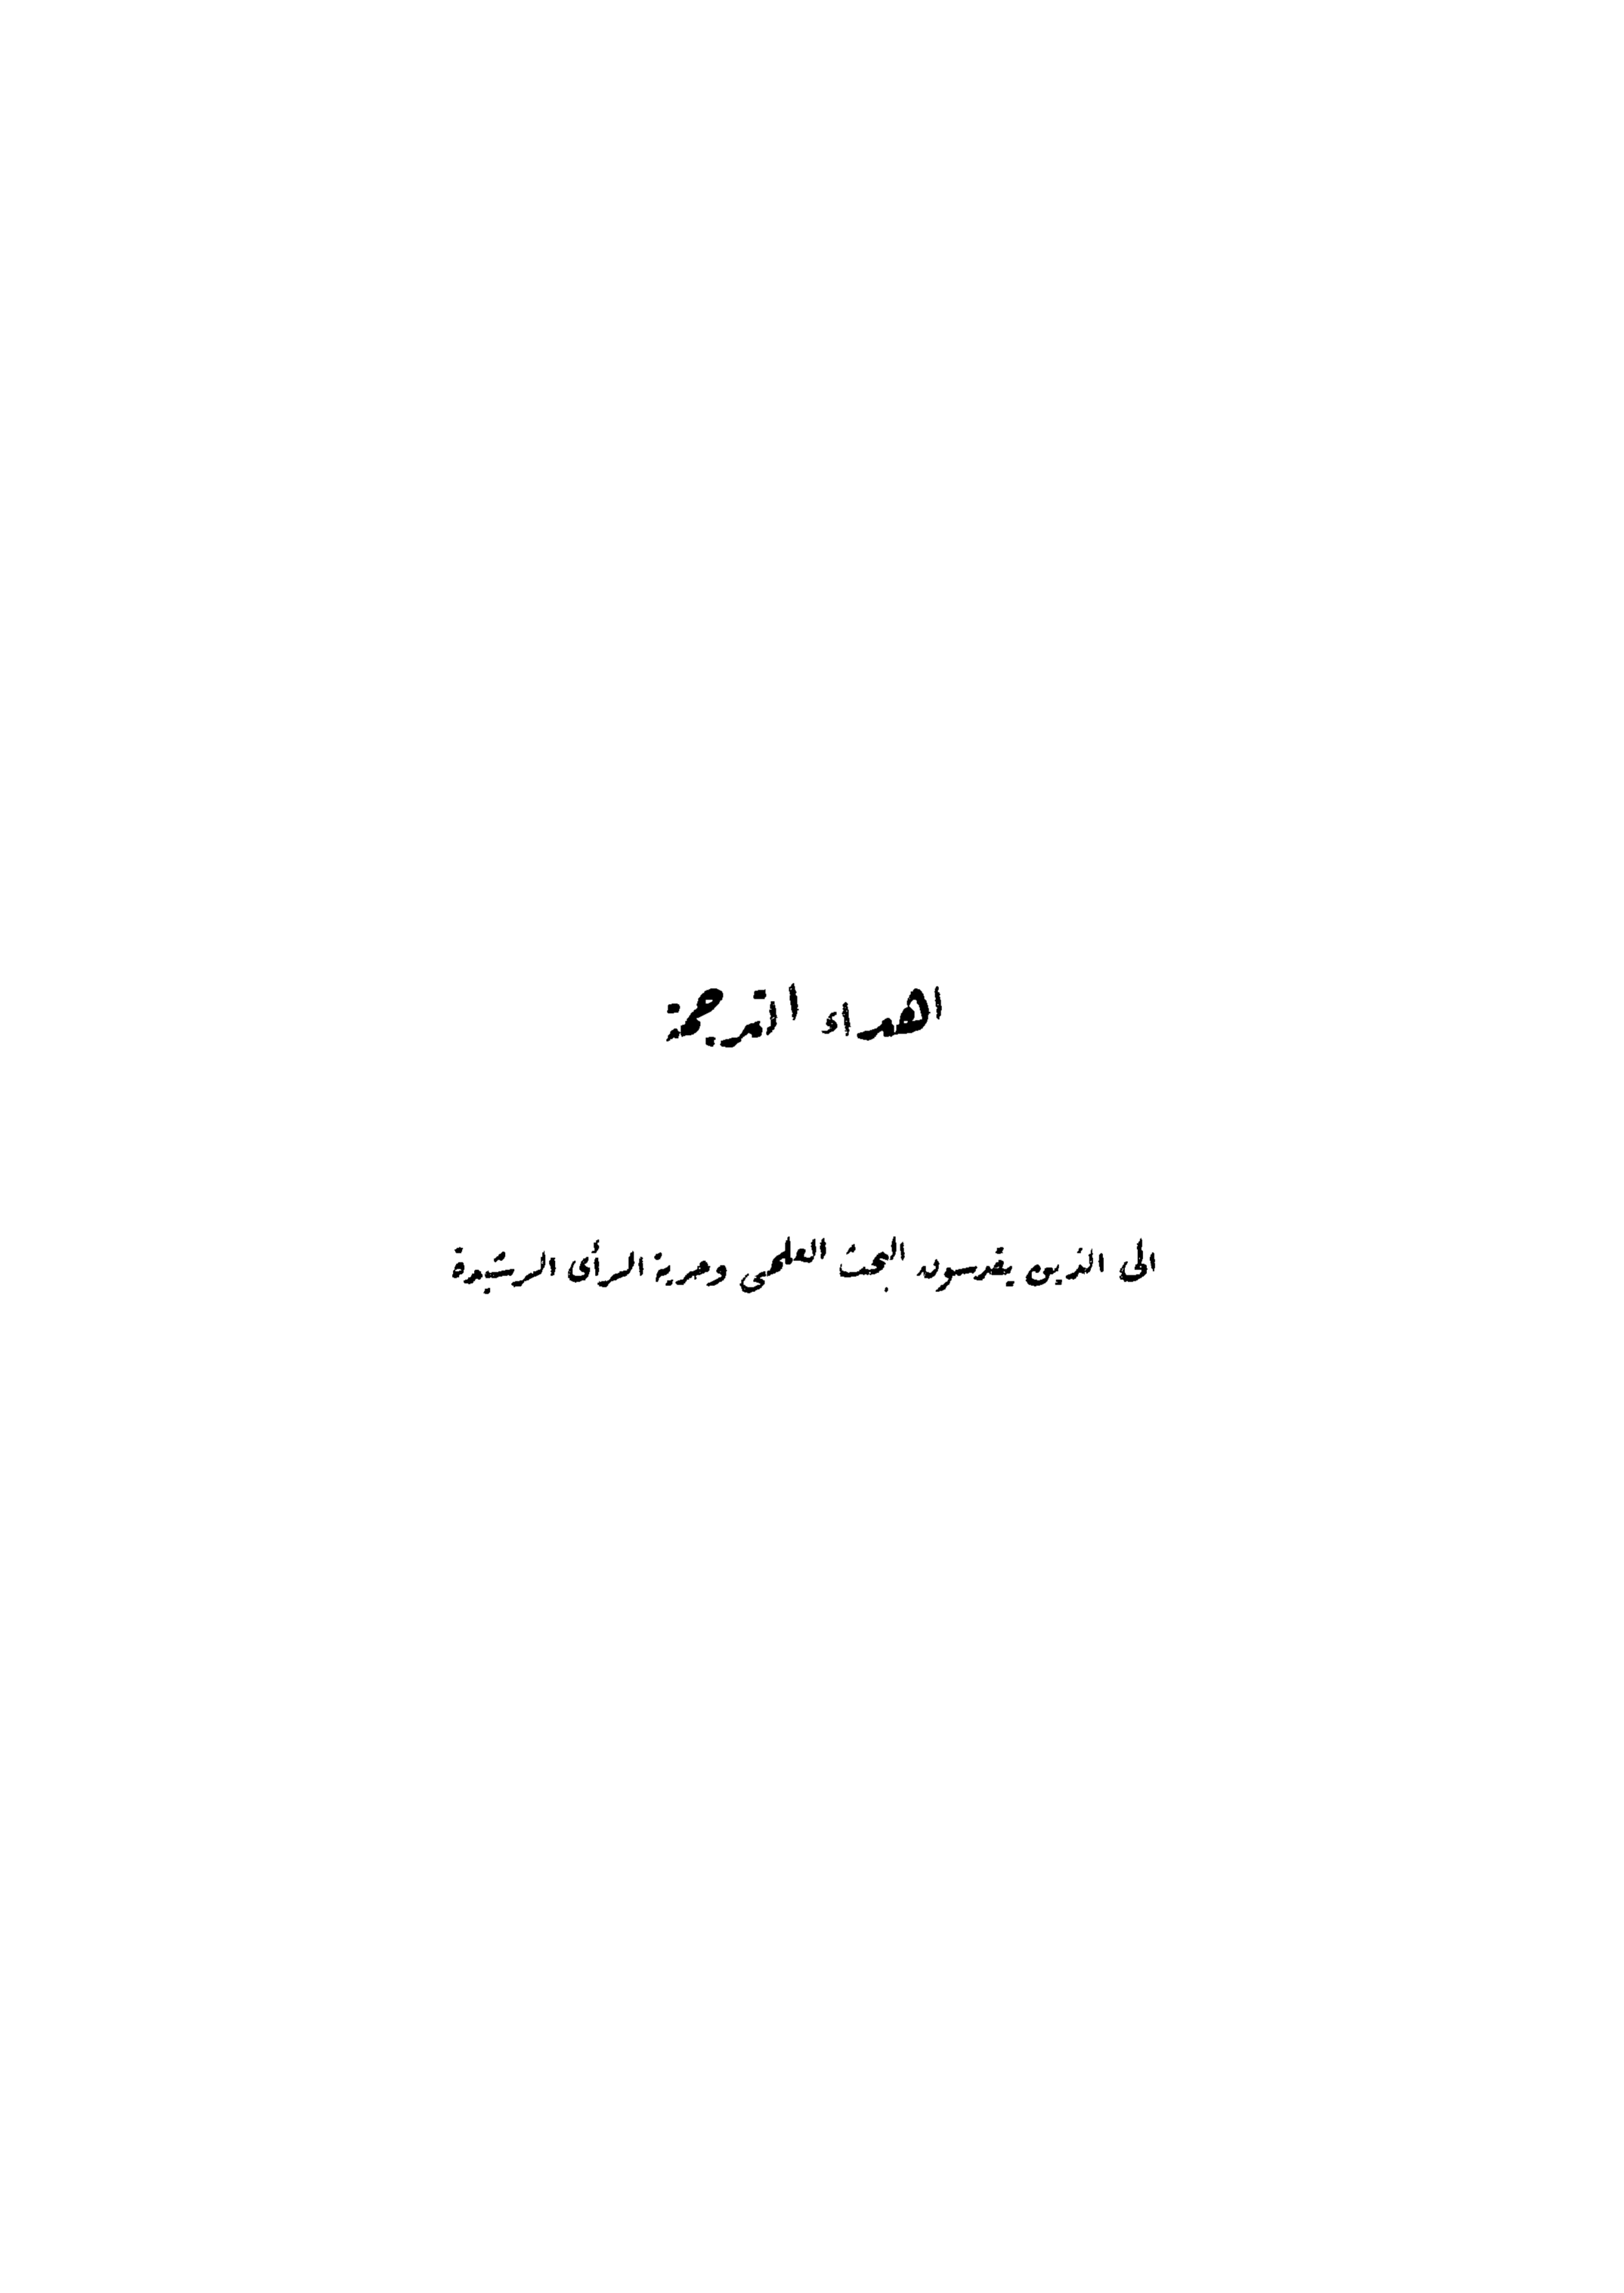 اهداء الترجمة
الى الذين يقدسون البحث العلمى وحرية الرأى الرشيدة